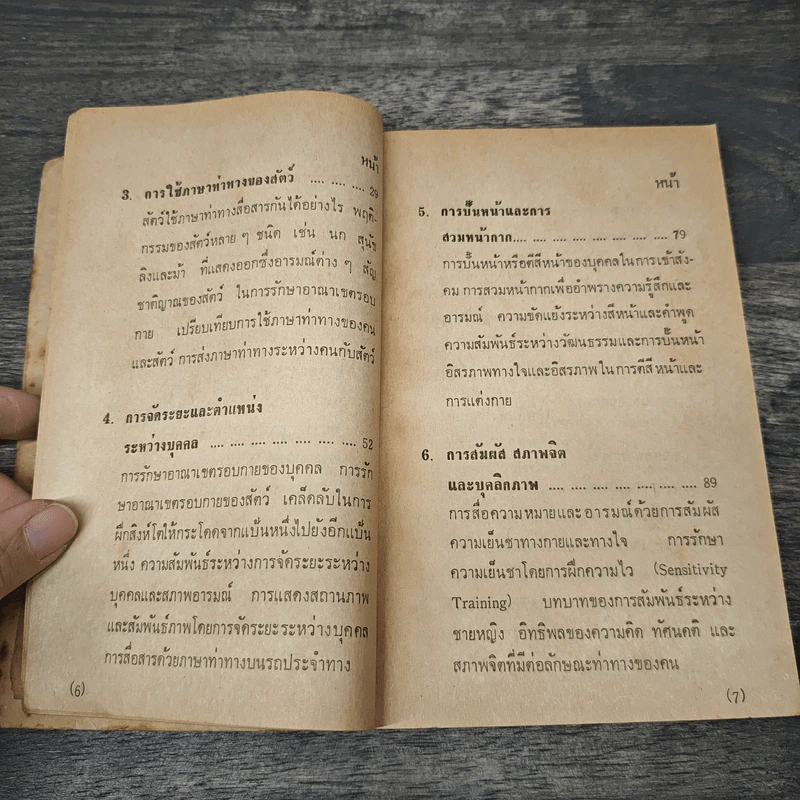 หน้า
3. การใช้ภาษาท่าทางของสัตว์ .... .... .... 29
สัตว์ใช้ภาษาท่าทางสื่อสารกันได้อย่างไร พฤติ-
กรรมของสัตว์หลาย ๆ ชนิด เช่น นก สุนัข
ลิงและม้า ที่แสดงออกซึ่งอารมณ์ต่าง ๆ สัญ
ชาติญาณของสัตว์ ในการรักษาอาณาเขตรอบ
กาย เปรียบเทียบการใช้ภาษาท่าทางของคน
และสัตว์ การส่งภาษาท่าทางระหว่างคนกับสัตว์
4. การจัดระยะและตำแหน่ง
ระหว่างบุคคล .... .... .... .... .... .... .... .... 52
การรักษาอาณาเขตรอบกายของบุคคล การรัก
ษาอาณาเขตรอบกายของสัตว์ เคล็ดลับในการ
ฝึกสิงห์โตให้กระโดดจากแป้นหนึ่งไปยังอีกแป้น
หนึ่ง ความสัมพันธ์ระหว่างการจัดระยะระหว่าง
บุคคลและสภาพอารมณ์ การแสดงสถานภาพ
และสัมพันธ์ภาพโดยการจัดระยะระหว่างบุคคล
การสื่อสารด้วยภาษาท่าทางบนรถประจำทาง
(6)
หน้า
5. การปั้นหน้าและการ
สวมหน้ากาก.... .... .... .... .... .... .... .... 79
การปั้นหน้าหรือตีสีหน้าของบุคคลในการเข้าสัง-
คม การสวมหน้ากากเพื่ออำพรางความรู้สึกและ
อารมณ์ ความขัดแย้งระหว่างสีหน้าและคำพูด
ความสัมพันธ์ระหว่างวัฒนธรรมและการปั้นหน้า
อิสรภาพทางใจและอิสรภาพในการตีสีหน้าและ
การแต่งกาย
6. การสัมผัส สภาพจิต
และบุคลิกภาพ .... .... .... .... .... .... .... 89
การสื่อความหมายและอารมณ์ด้วยการสัมผัส
ความเย็นชาทางกายและทางใจ การรักษา
ความเย็นชาโดยการฝึกความไว (Sensitivity
Training) บทบาทของการสัมพันธ์ระหว่าง
ชายหญิง อิทธิพลของความคิด ทัศนคติ และ
สภาพจิตที่มีต่อลักษณะท่าทางของคน
(7)